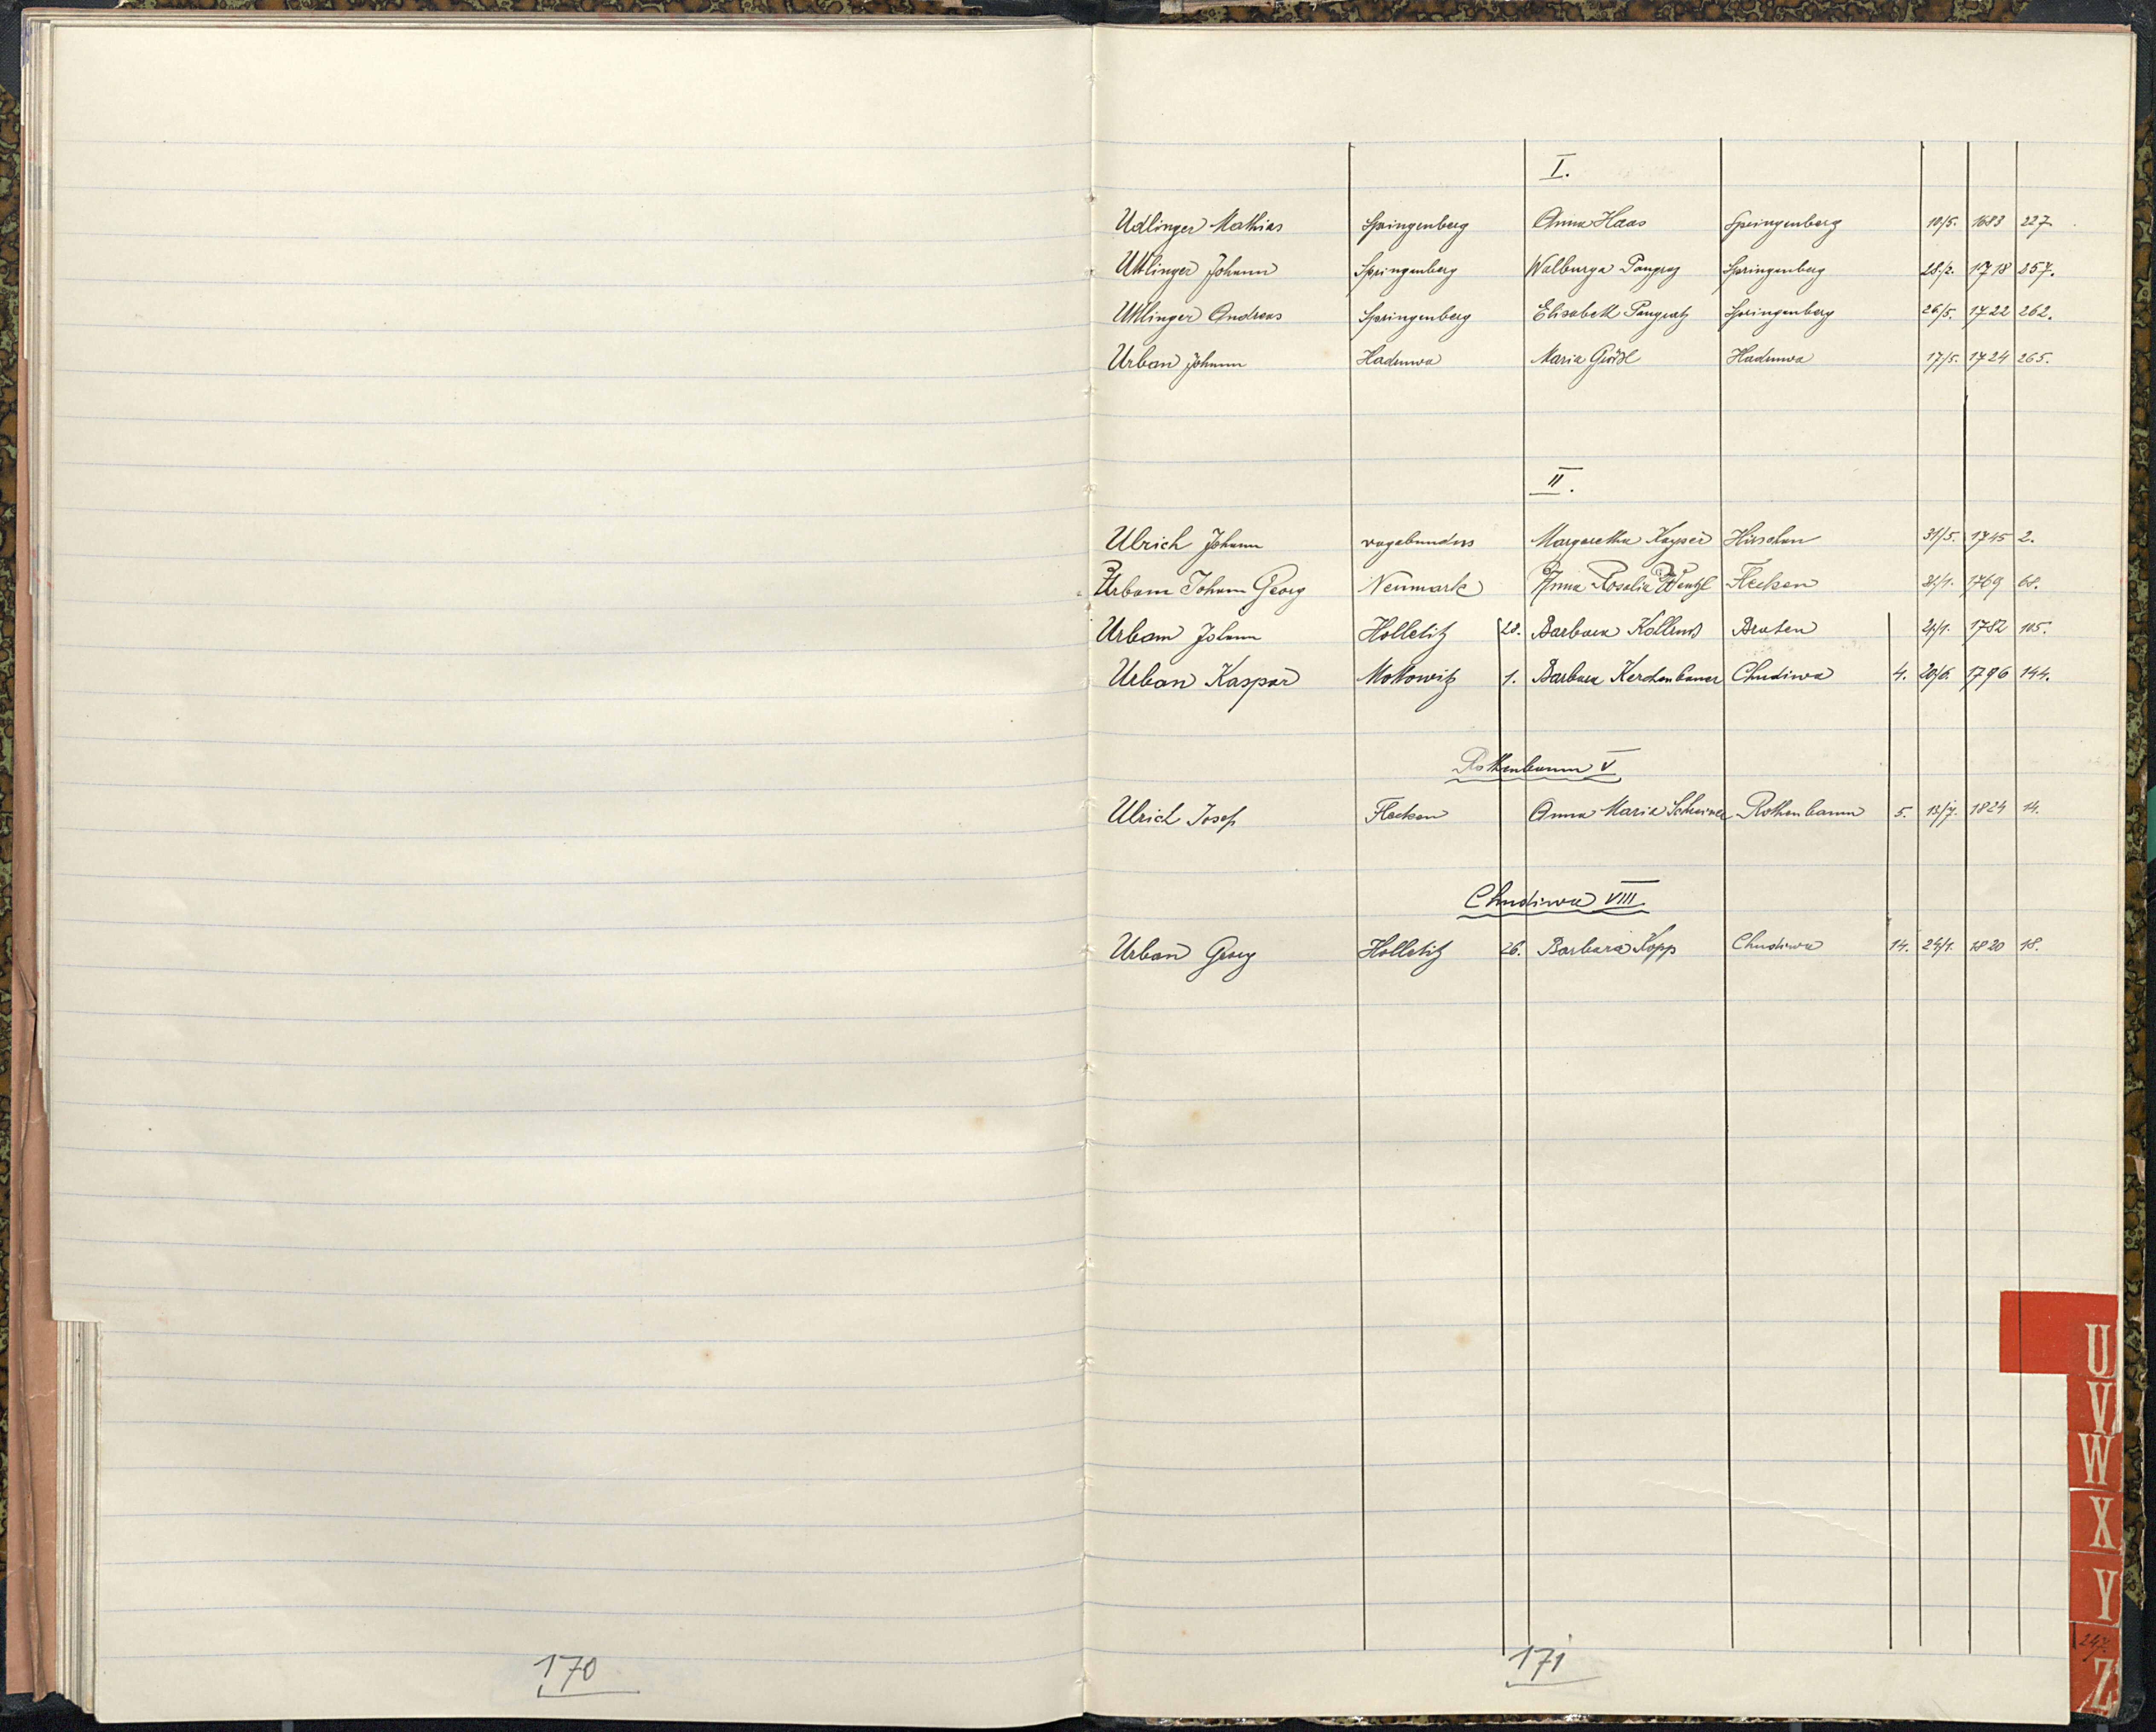 I.
Udlinger Mathias Springenberg Anna Haas Springenberg 18/5. 1683 227
Uttlinger Johann Springenberg Walburga Springenberg 28/2. 1718 257.
Uttlinger Andreas Springenberg Elisabeth Springenberg 26/5. 1722 262.
Urban Johann Hadruwa Maria Hadruwa 17/5. 1724 265.
II.
Ulrich Johann vagabundus Margaretha Kayser 31/5. 1745 2.
Urban Johann Georg Neumark Anna Rosalia Flecken 1769 68.
Urban Johann Holletitz 28. Barbara Braten 1782 105.
Urban Kaspar 1. Barbara Kerchenbauer Chudiwa 4. 1796 144.
Rothenbaum V
Ulrich Josef Flecken Anna Maria Rothenbaum 5. 13/7. 1824 14.
Chudiwa VIII.
Urban Georg Holletitz 26. Barbara Kopp Chudiwa 14. 24/1. 1820 18.
170
171
U
V
W
X
Y
247.
Z